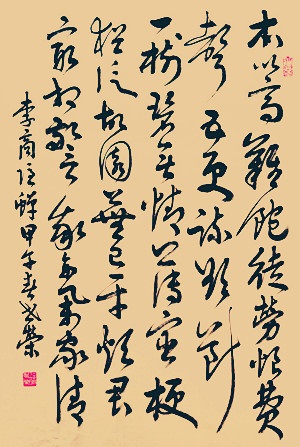 本以高難飽徒勞恨費
聲五更疏欲斷
一樹碧无情薄宦梗
猶泛故園蕪已平煩君
最相警我亦舉家清
李商隱蟬甲午春榮